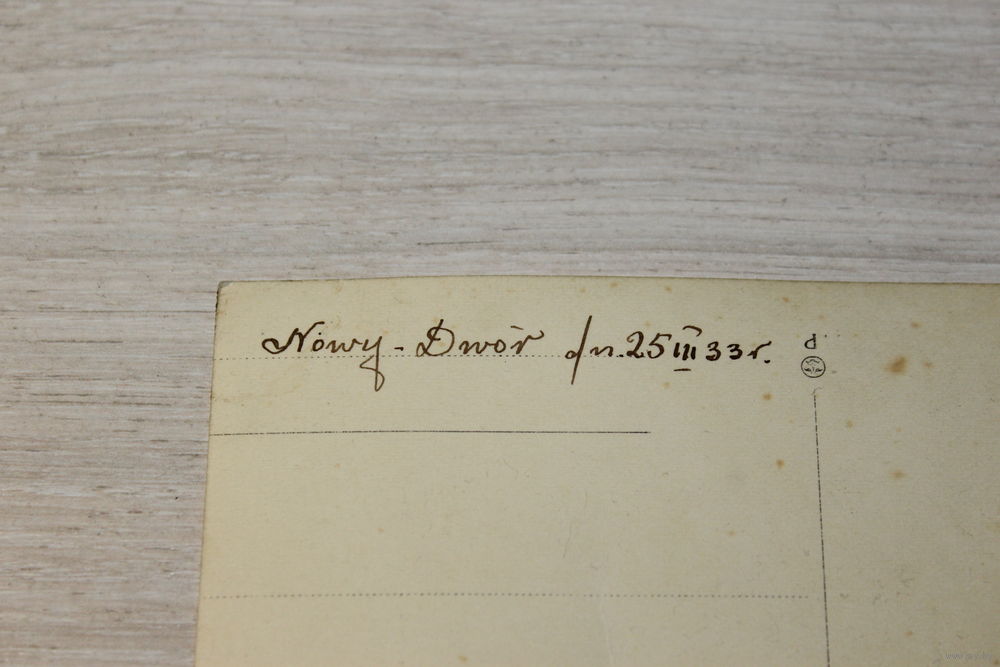 Nowy-Dwór dn. 25 III 33 r.
P